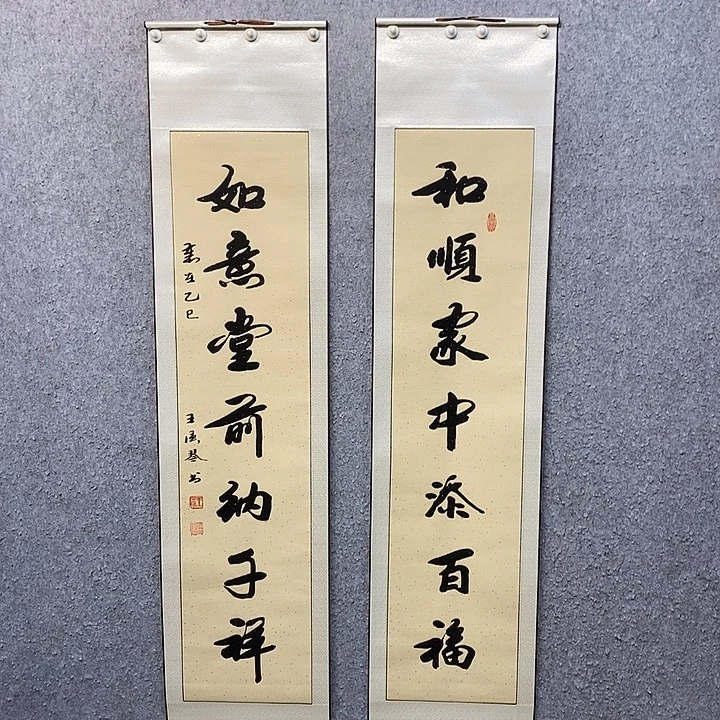 和順家中添百福
如意堂前納千祥
歲在乙巳
王 琴书